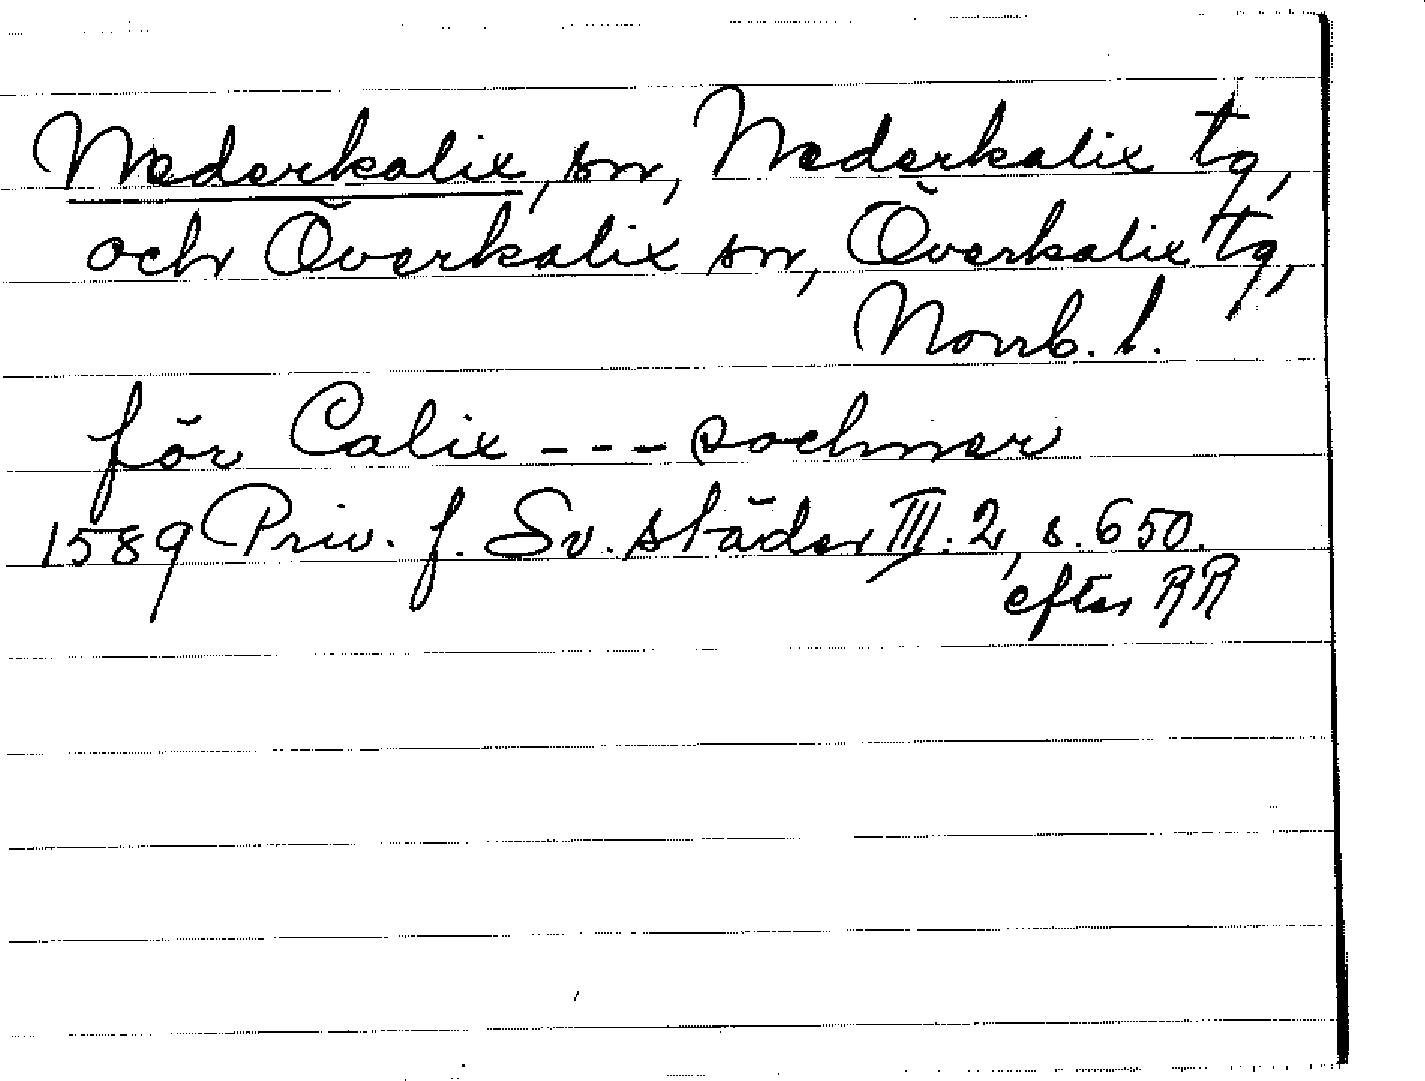 Nederkalix, sn, Nederkalix tg,
och Överkalix sn, Överkalix tg,
Norrb. l.
för Calix --- sochner
1589 Priv. f. Sv. städer III:2, s. 650.
efter RR